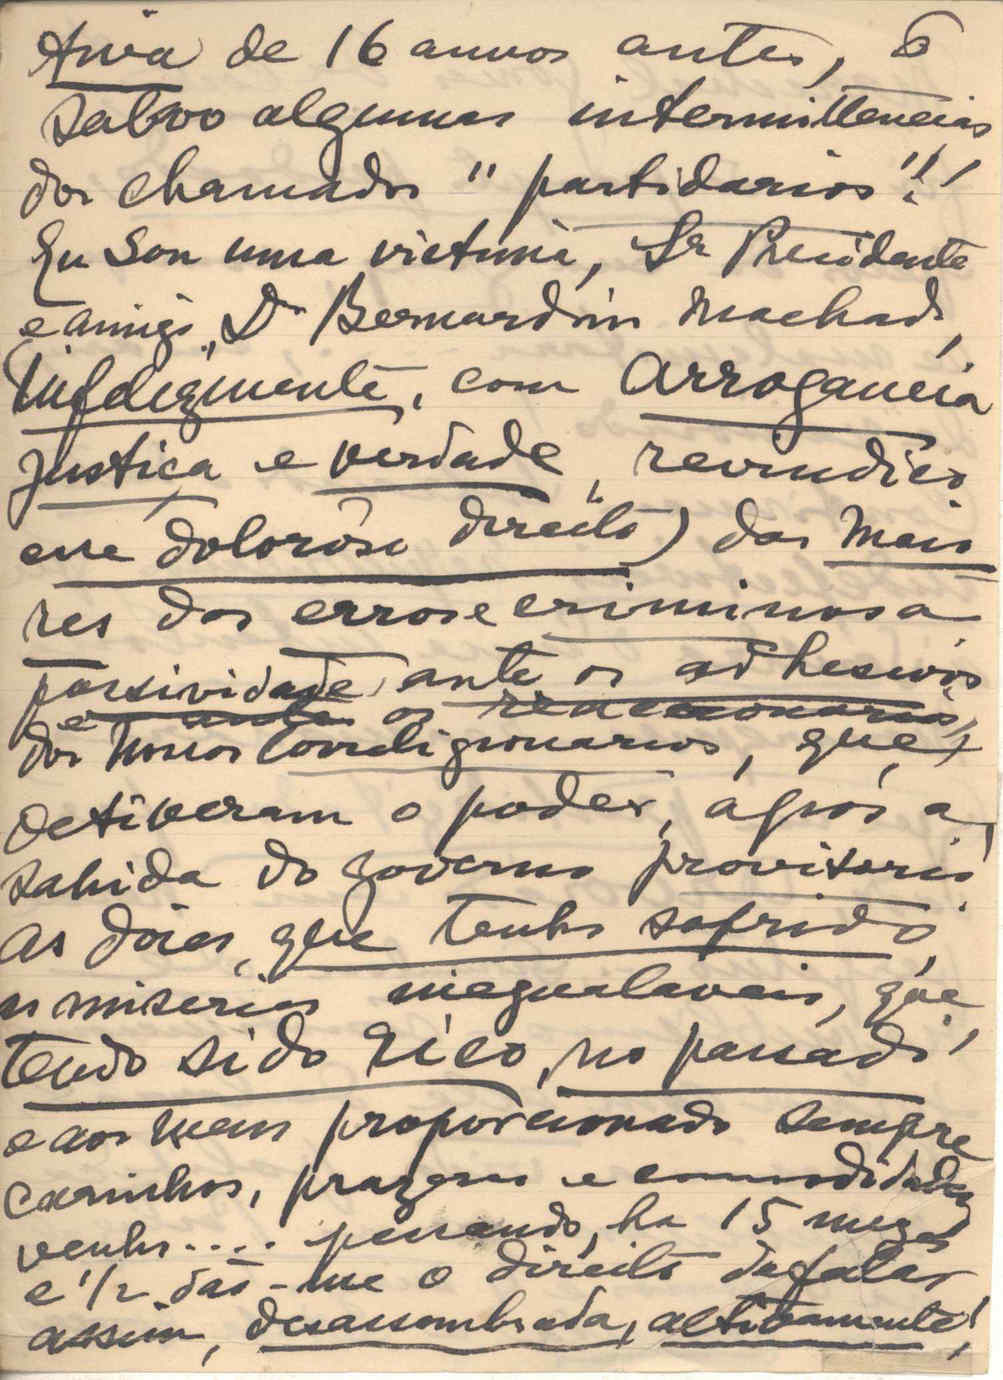 tiva de 16 annos antes, 6
salvo algumas intermittencias
dos chamados "partidarios"!!
Eu sou uma victima, Sr Presidente
e amigo, Dr Bernardino Machado,
Infelizmente, com arrogancia
justiça e verdade, revindico
esse doloroso direito) das maio
res dos erros e criminosa
passividade ante os adhesivos
e ante os reaccionarios,
dos nossos correligionarios, que,
detiveram o poder, após a
sahida do governo provisorio
As dôres, que tenho sofrido,
as miserias inegualaveis, que,
tendo sido rico, no passado,
e aos meus proporcionado sempre
carinhos, prazeres e commodidades
venho.... penando, ha 15 mezes
e 1/2 dão-me o direito de falar
assim, desassombrada, altivamente!